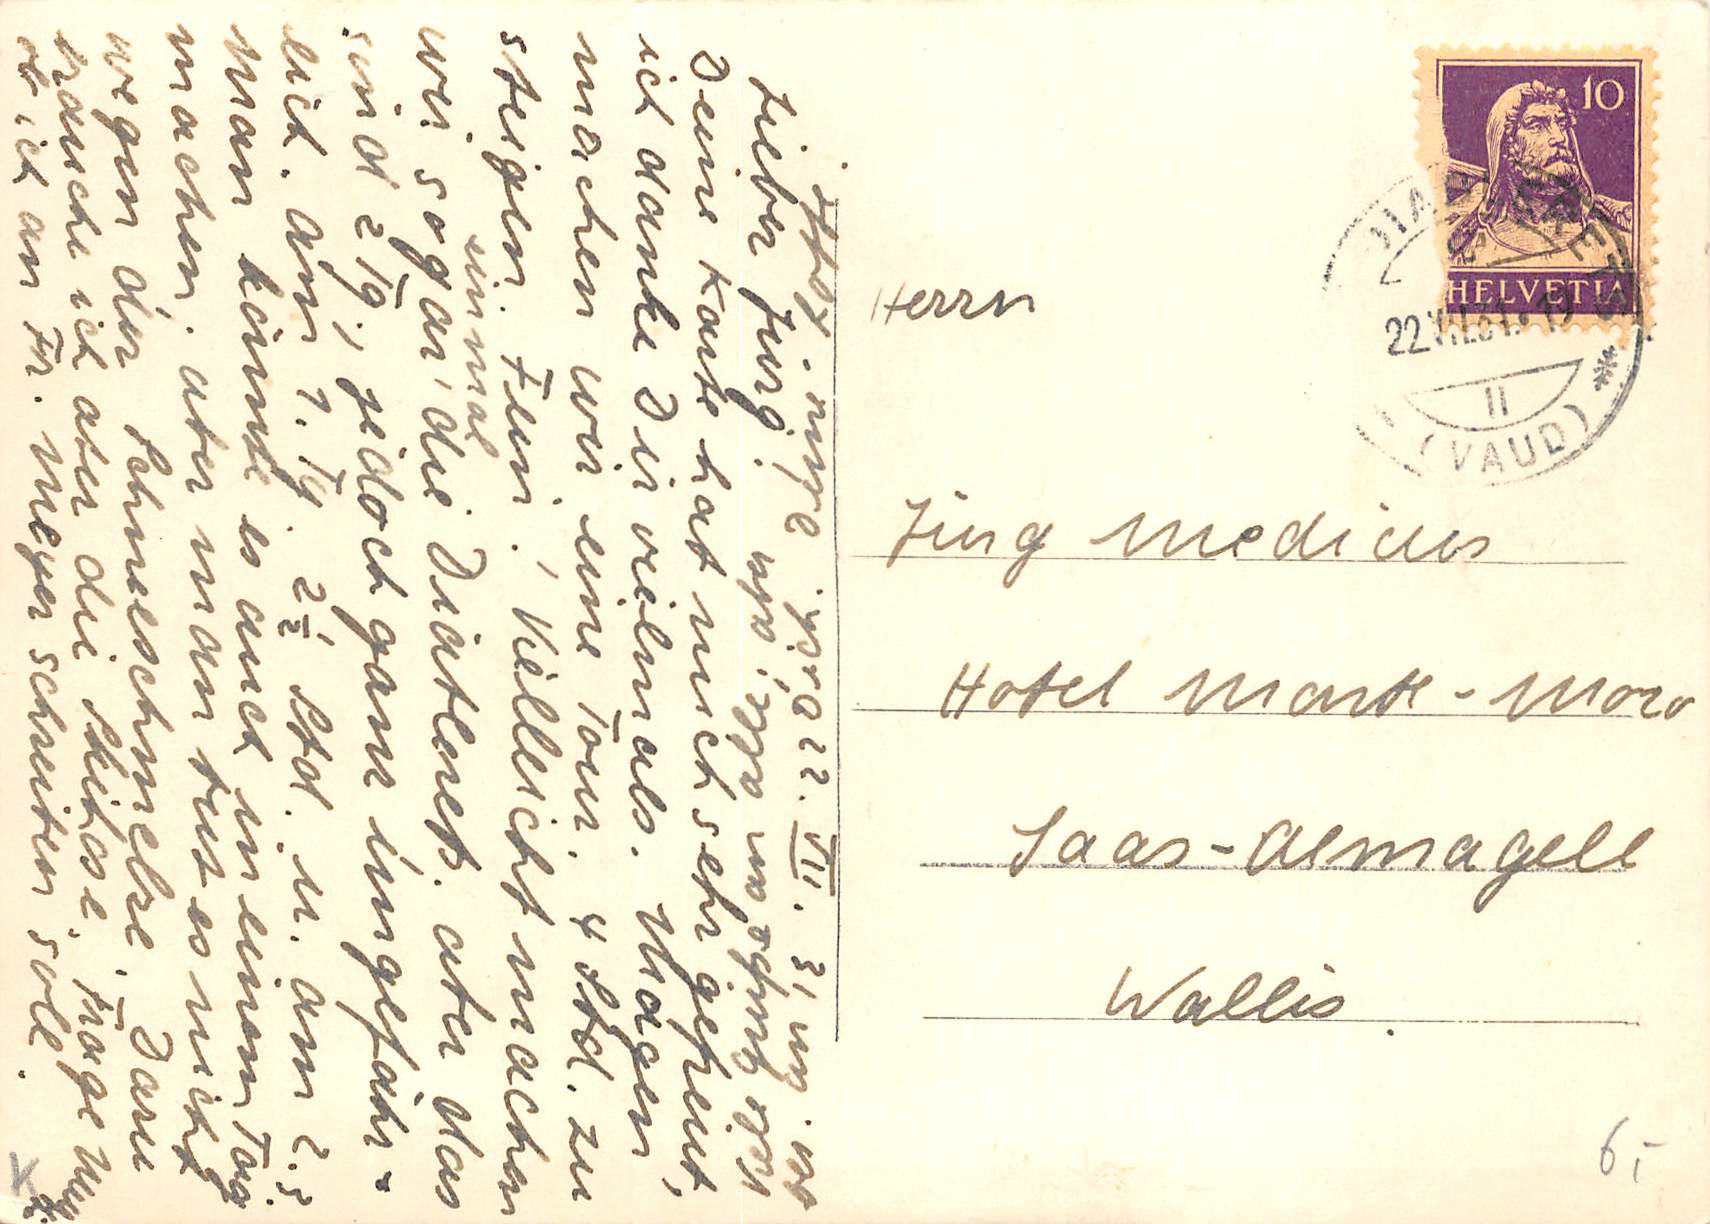 Lieber Jürg!
Deine Karte hat mich sehr gefreut,
ich danke Dir vielmals. Morgen
machen wir eine Tour. 4 Std. zu
steigen. Fein! Vielleicht machen
wir sogar die Diablerets. aber das
einmal
sind 2 Tg., jedoch ganz ungefähr-
lich. am 1. Tg. 2½ Std. u. am 2. 3
Man könnte es auch in einem Tag
machen. aber man tut es nicht
wegen der Schneeschmelze. Dazu
brauche ich aber die Skihose. Frage
ob ich an Fr. Meyer schreiben soll.
22. VII. 31
Herrn
Jürg Medicus
Hotel Monte-Moro
Saas-Almagell
Wallis.
10
HELVETIA
22.VII.31
II
(VAUD)
6,-